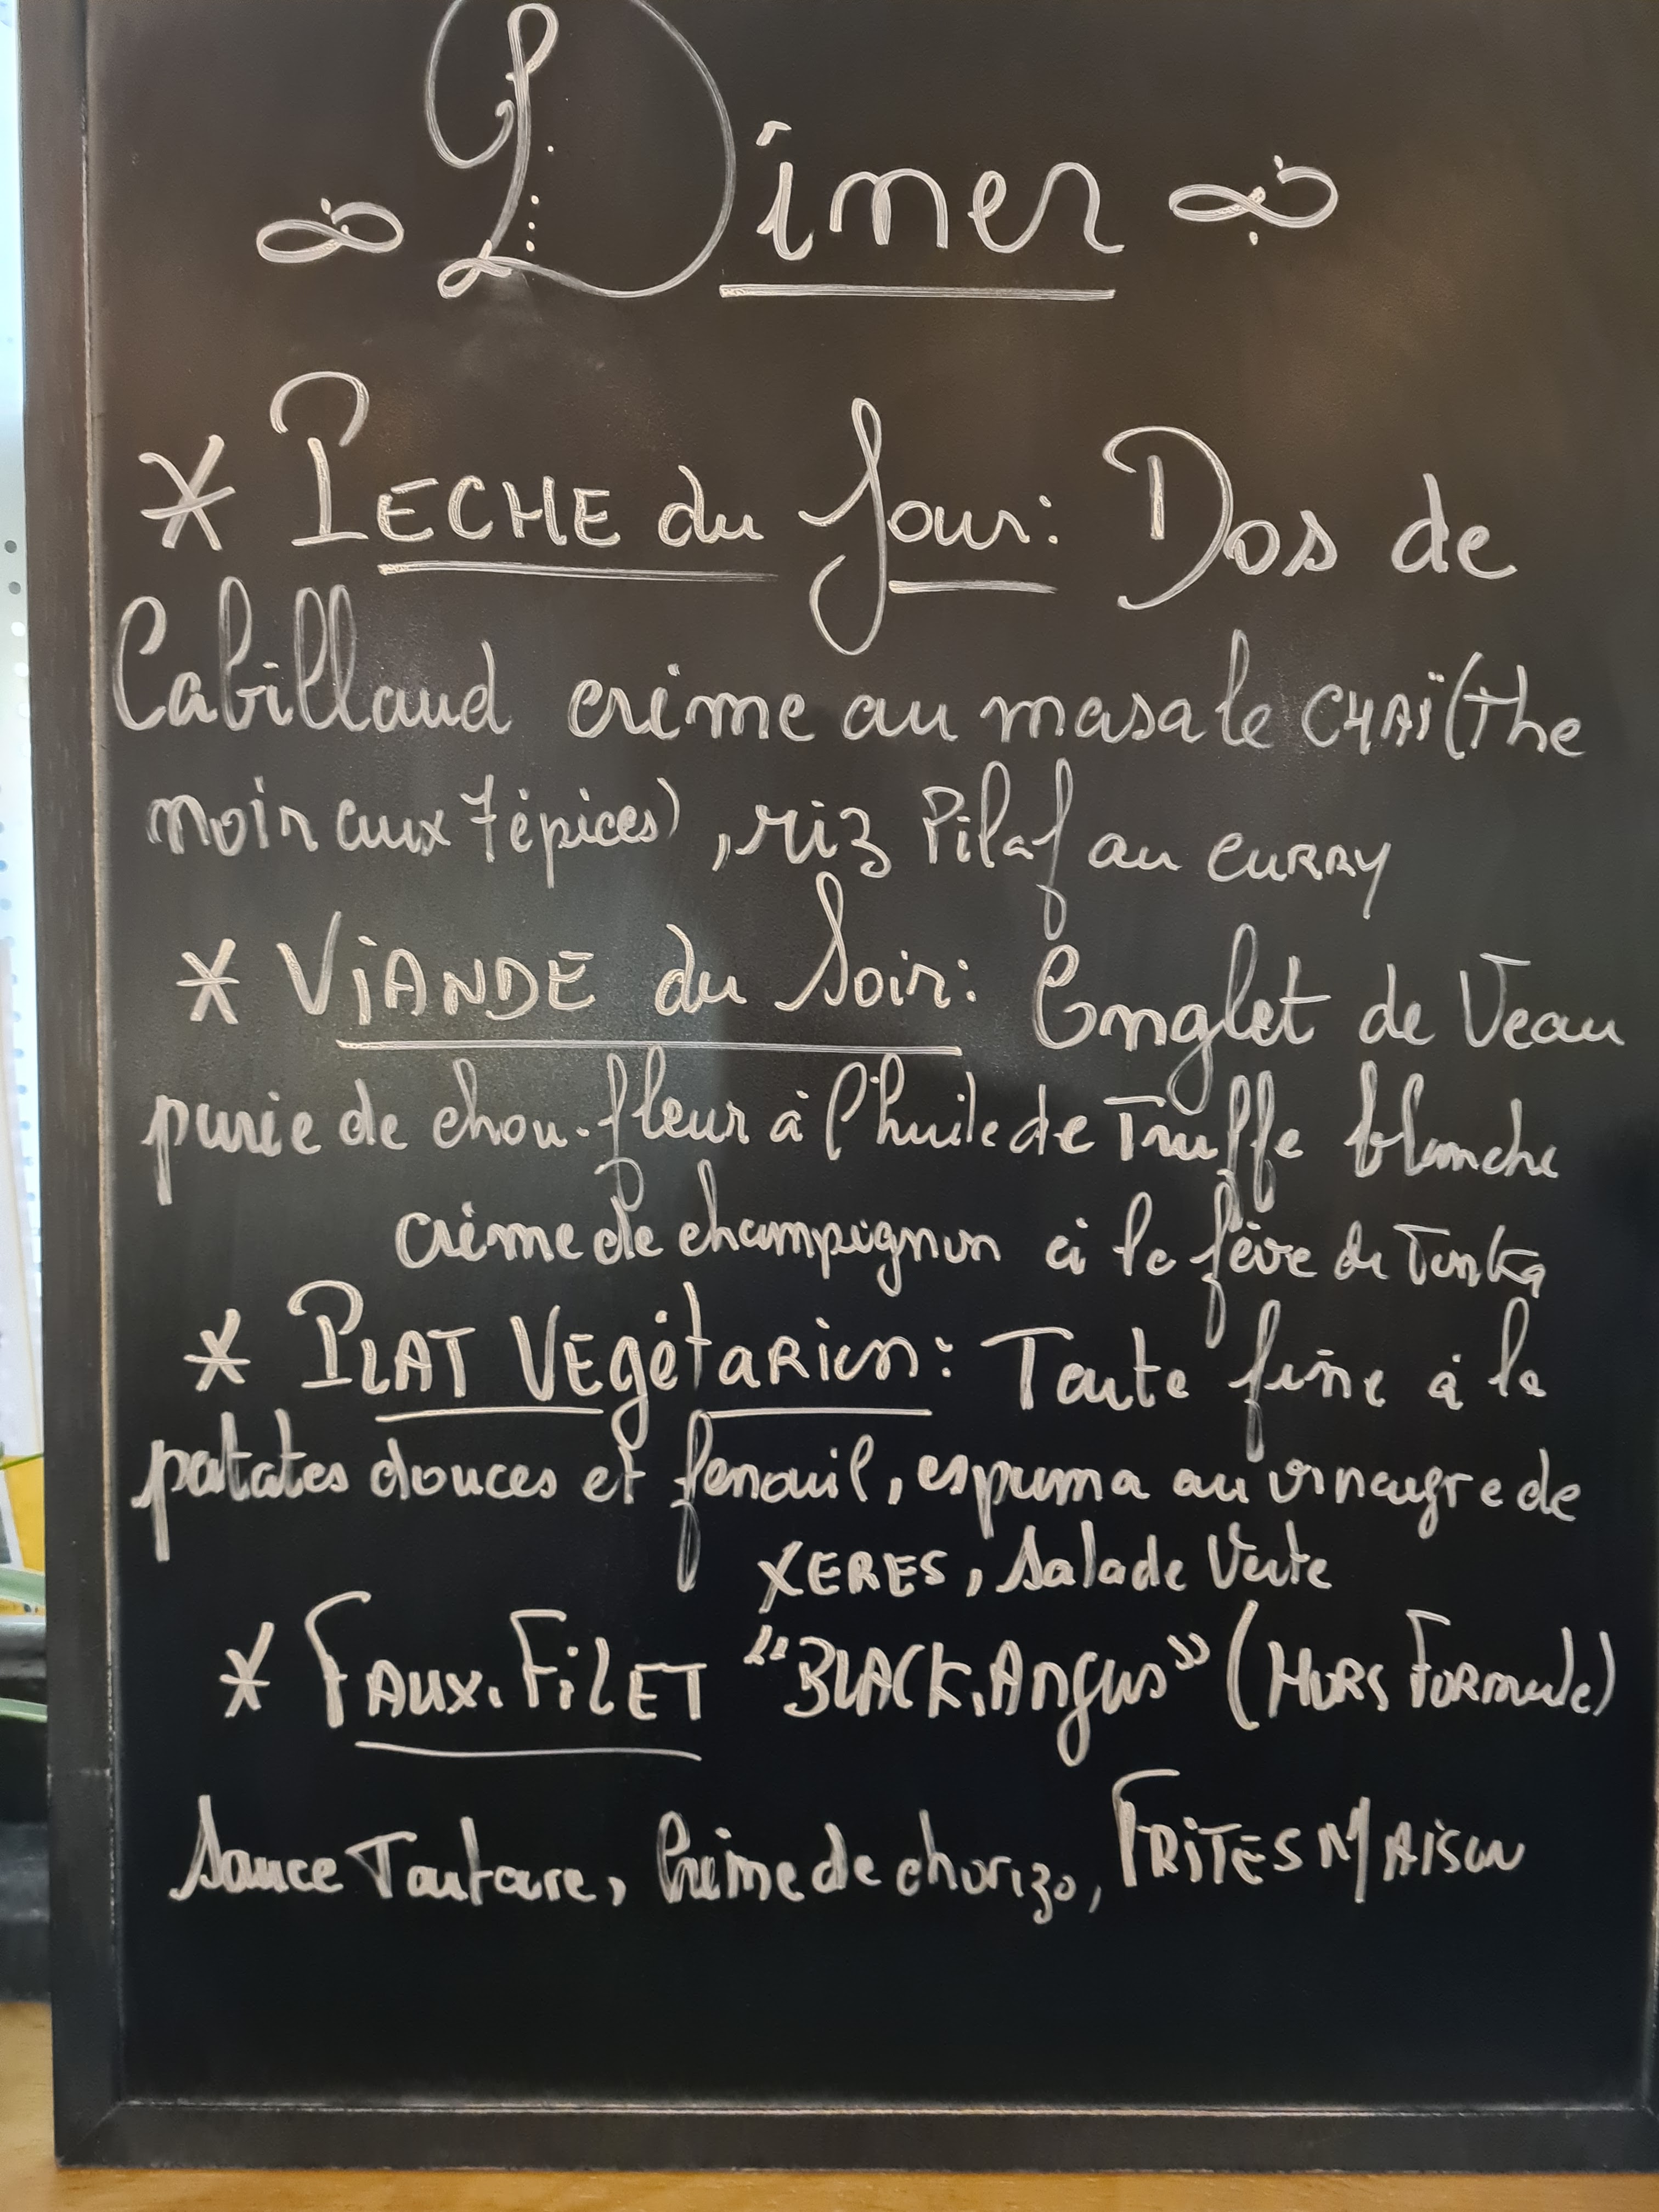 Dîner
* PECHE du Jour: Dos de
Cabillaud crème au masala CHAÏ (the
noir aux 7 épices), riz Pilaf au CURRY
* ViANDE du Soir: Onglet de Veau
purée de chou-fleur à l'huile de Truffe blanche
crème de champignon à la fève de Tonka
* PLAT VEgétaRien: Tarte fine à la
patates douces et fenouil, espuma au vinaigre de
XERES, Salade Verte
* FAUX-FiLET "BLACK.Angus" (HORS FORMule)
Sauce Tartare, Crème de chorizo, FRITES MAISON